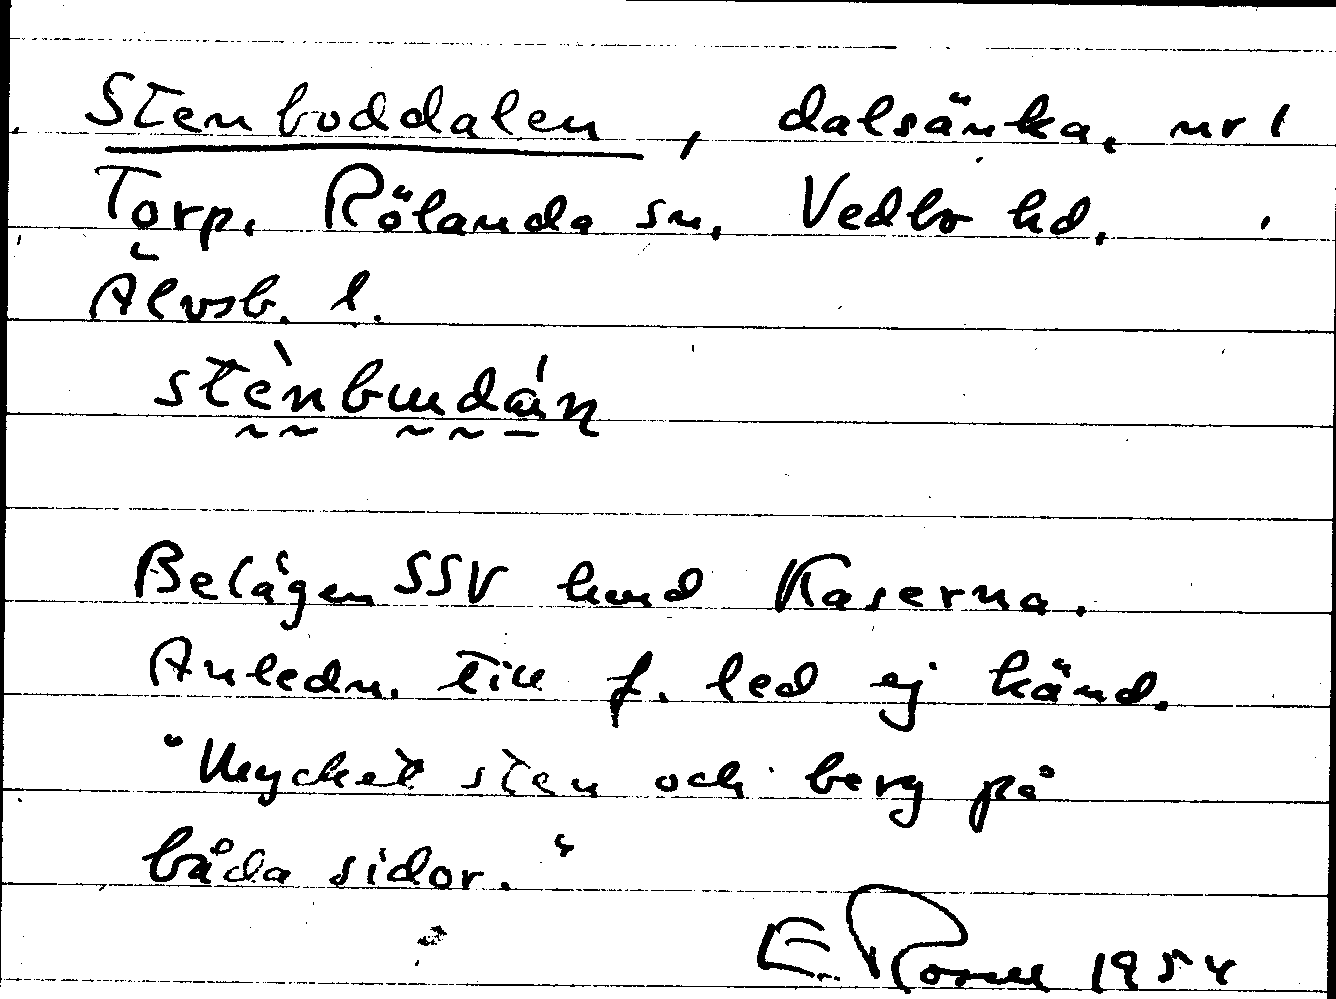 Stenboddalen, dalsänka, nr 1
Torp. Rölanda sn. Vedbo hd.
Älvsb. l.
Belägen SSV kund Kaserna.
Anledn. till f. led ej känd.
"Mycket sten och berg på
båda sidor."
E. 1954